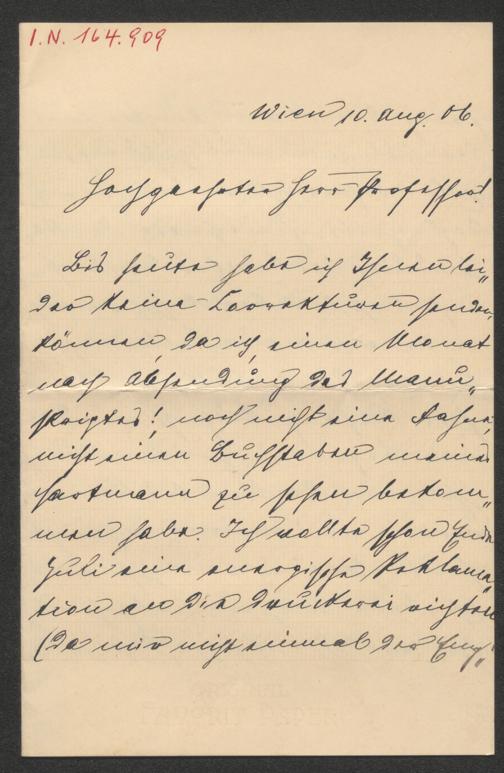 I.N. 164.909
Wien 10. Aug. 06.
Hochgeehrter Herr Professor!
Bis heute habe ich Ihnen lei„
der keine Correkturen senden
können, da ich, einen Monat
nach Absendung des Manu„
skriptes! noch nicht eine Fahne,
nicht einen Buchstaben meines
Hartmann zu sehen bekom„
men habe. Ich wollte schon Ende
Juli eine energische Reklama„
tion an die Druckerei richten
(da mir nicht einmal der Emp„